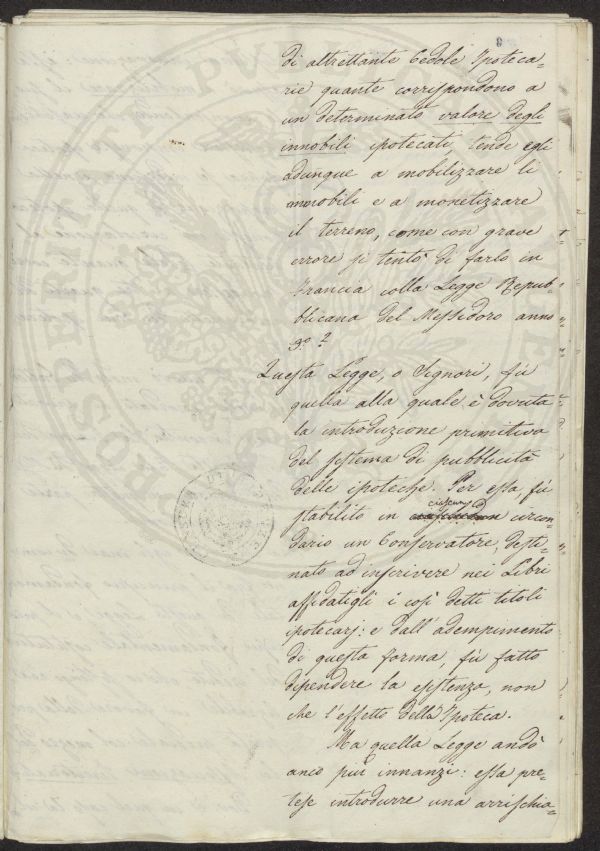 di altrettante Cedole Ipoteca=
rie quante corrispondono a
un determinato valore degli
immobili ipotecati, tende egli
adunque a mobilizzare li
immobili e a monetizzare
il terreno, come con grave
errore si tentò di farlo in
Francia colla Legge Repub=
blicana del Messidoro anno
3.º ?
Questa Legge, o Signori, fù
quella alla quale è dovuta
la introduzione primitiva
del sistema di pubblicità
delle ipoteche. Per essa fù
ciascun
stabilito in circon=
dario un Conservatore, desti=
nato ad inscrivere nei Libri
affidatigli i così detti titoli
ipotecarj: e dall'adempimento
di questa forma, fù fatto
dependere la esistenza, non
che l'effetto della Ipoteca.
Ma quella Legge andò
anco più innanzi: essa pre=
tese introdurre una arrischia=